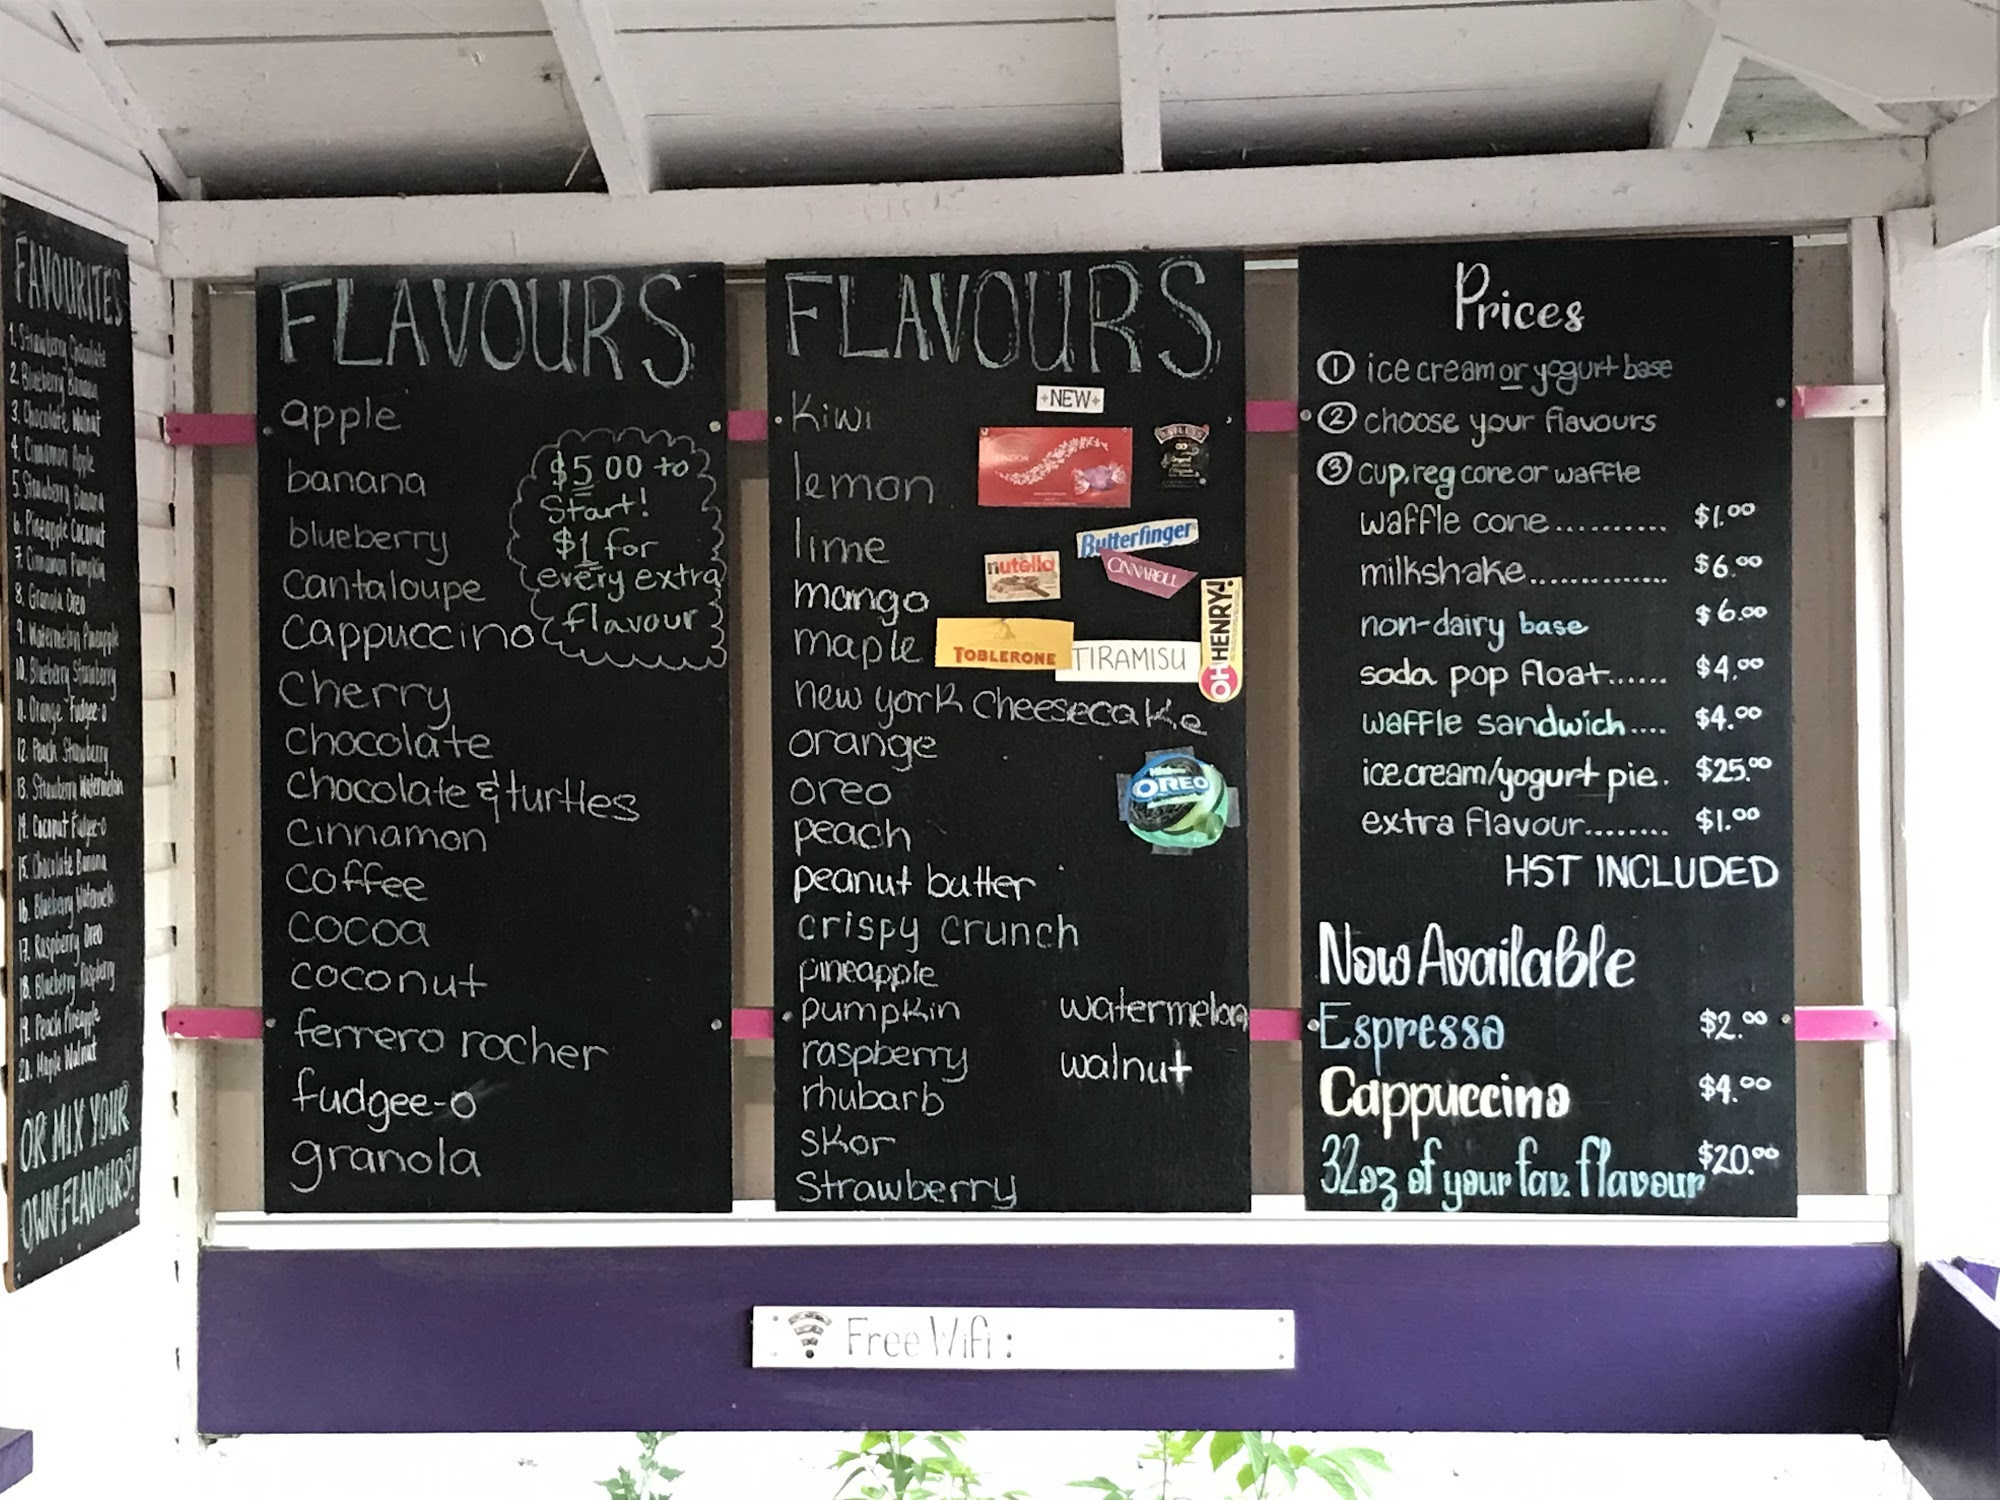 FAVOURITES
1. Strawberry Chocolate
2. Blueberry Banana
3. Chocolate Walnut
4. Cinnamon Apple
5. Strawberry Banana
6. Pineapple Coconut
7. Cinnamon Pumpkin
8. Granola Oreo
9. Watermelon Pineapple
10. Blueberry Strawberry
11. Orange Fudgee-o
12. Peach Strawberry
13. Strawberry Watermelon
14. Coconut Fudgee-o
15. Chocolate Banana
16. Blueberry Watermelon
17. Raspberry Oreo
18. Blueberry Raspberry
19. Peach Pineapple
20. Maple Walnut
OR MIX YOUR
OWN FLAVOURS!
FLAVOURS
apple
banana
blueberry
cantaloupe
cappuccino
cherry
chocolate
chocolate & turtles
cinnamon
coffee
cocoa
coconut
ferrero rocher
fudgee-o
granola
$5.00 to
Start!
$1 for
every extra
flavour
FLAVOURS
kiwi
lemon
lime
mango
maple
new york cheesecake
orange
oreo
peach
peanut butter
crispy crunch
pineapple
pumpkin
raspberry
rhubarb
skor
Strawberry
watermelon
walnut
NEW
BAILEYS
Butterfinger
nutella
CINNAROLL
OH HENRY!
TOBLERONE
TIRAMISU
OREO
Prices
1 ice cream or yogurt base
2 choose your flavours
3 cup, reg cone or waffle
waffle cone........... $1.00
milkshake.............. $6.00
non-dairy base $6.00
soda pop float...... $4.00
waffle sandwich.... $4.00
ice cream/yogurt pie. $25.00
extra flavour........ $1.00
HST INCLUDED
Now Available
Espresso $2.00
Cappuccino $4.00
32oz of your fav. flavour $20.00
Free Wifi: